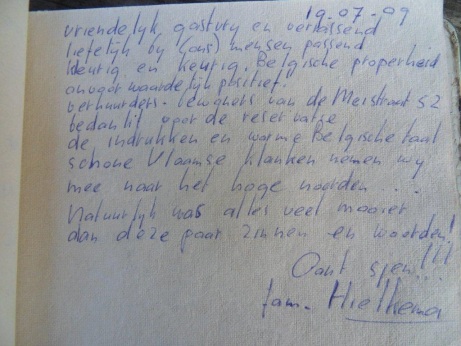 19-07-09
vriendelijk, gastvrij en verrassend
liefelijk bij (ons) mensen passend
kleurig en keurig. Belgische properheid
onvoorwaardelijk positief.
verhuurders - bewoners van de Meistraat 52
bedankt voor de reservatie
de indrukken en warme Belgische taal
schone Vlaamse klanken nemen wij
mee naar het hoge noorden...
Natuurlijk was alles veel mooier
dan deze paar zinnen en woorden!
Oant sjen!!!
fam. Hielkema